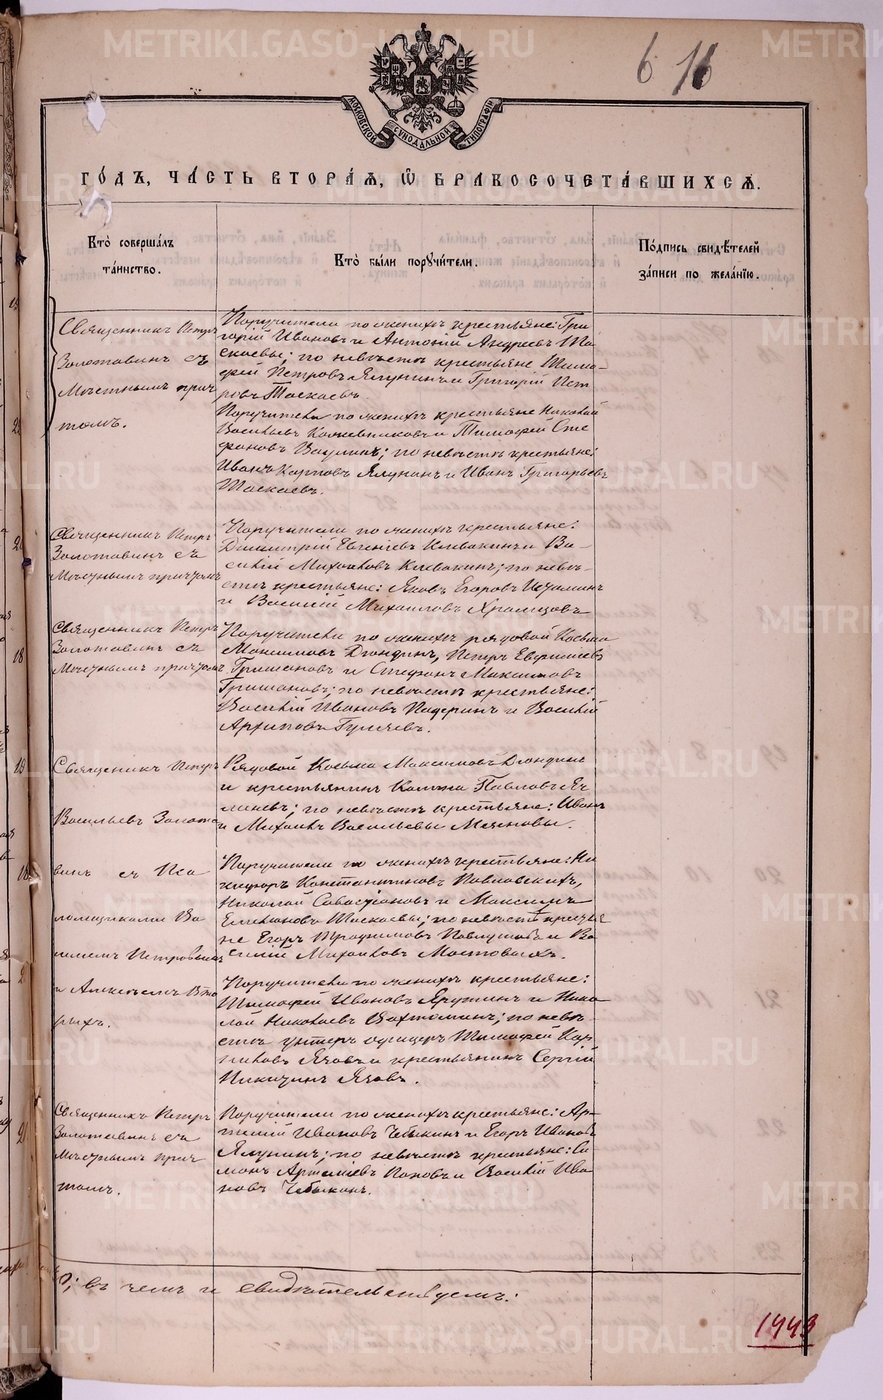 6 16
МОСКОВСКОЙ СѴНОДАЛЬНОЙ ТИПОГРАФІИ
ГО́ДЪ, ЧА́СТЬ ВТОРА́Ѧ, Ѡ҆ БРАКОСОЧЕТА́ВШИХСѦ.
Кто̀ совершáлъ
та́инство.
Кто̀ бы́ли порꙋчи́тели.
По́дпись свидѣ́телей
за́писи по жела́нію.
Священникъ Петръ
Золотавинъ съ
Мѣстнымъ прич
томъ.
Поручители по женихѣ крестьяне: Гри
горій Ивановъ и Антоній Андреевъ Та
скаевы; по невѣстѣ крестьяне Тимо
фей Петровъ Ялунинъ и Григорій Пет
ровъ Таскаевъ.
Поручители по женихѣ крестьяне Николай
Васильевъ Кожевниковъ и Тимофей Сте
фановъ Ваулинъ; по невѣстѣ крестьяне:
Иванъ Карповъ Ялунинъ и Иванъ Григорьевъ
Таскаевъ.
Священникъ Петръ
Золотавинъ съ
Мѣстнымъ причтомъ
Поручители по женихѣ крестьяне:
Димитрій Евгеніевъ Кивакинъ и Ва-
силій Михайловъ Кивакинъ; по невѣ-
стѣ крестьяне: Яковъ Егоровъ
и Василій Михайловъ Храмцовъ
Священникъ Петръ
Золотавинъ съ
Мѣстнымъ причтомъ
Поручители по женихѣ рядовой Косьма
Максимовъ Дюндинъ, Петръ
Гришановъ и Стефанъ Максимовъ
Гришановъ; по невѣстѣ крестьяне:
Василій Ивановъ Падеринъ и Василій
Архиповъ Гуляевъ.
Священникъ Петръ
Васильевъ Золота
винъ съ Пса
ломщиками Ва
и Алексѣемъ Вто
рыхъ.
Рядовой Косьма Максимовъ Дюндинъ
и крестьянинъ Павловъ
по невѣстѣ крестьяне: Иванъ
и Михаилъ Васильевы
Поручители по женихѣ крестьяне: Ни
кифоръ Константиновъ Павловскихъ,
Николай Савастіановъ и Максимъ
Емельяновъ Таскаевы; по невѣстѣ крестья
не Егоръ Трофимовъ и Ва
силій Михайловъ Мостовыхъ.
Поручители по женихѣ крестьяне:
Тимофей Ивановъ Ярутинъ и Нико
лай Николаевъ Вахтоминъ; по невѣ-
стѣ унтеръ офицеръ Тимофей Кар
пиковъ Язовъ и крестьянинъ Сергій
Никитинъ Язовъ.
Священникъ Петръ
Золотавинъ съ
Мѣстнымъ прич
томъ.
Поручители по женихѣ крестьяне: Ар-
темій Ивановъ Чебыкинъ и Егоръ Ивановъ
Ялунинъ; по невѣстѣ крестьяне: Си
монъ Артеміевъ Поповъ и Василій Ива
новъ Чебыкинъ.
въ чемъ и свидѣтельствуемъ:
1443
METRIKI.GASO-URAL.RU